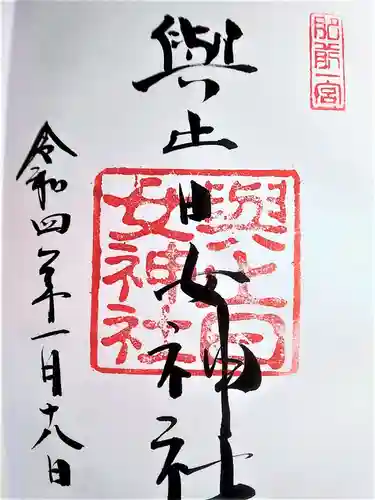 肥前一宮
與止日女神社
與止日女神社
令和四年一月十八日